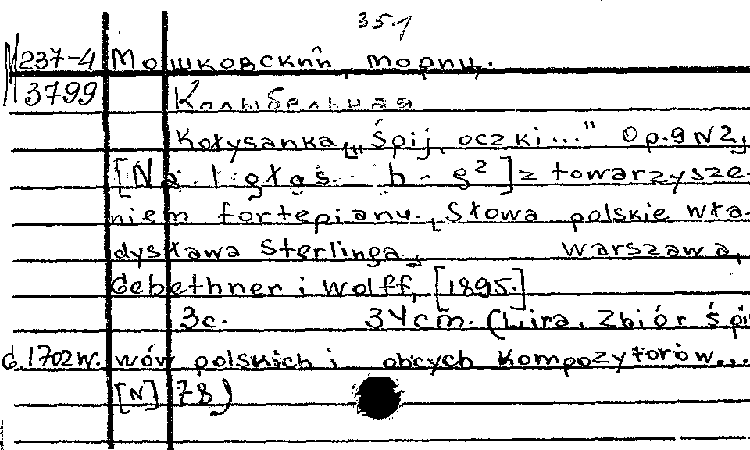 35.1
М 237-4 Мошковский, Мориц.
3799 Колыбельная
Kołysanka „Śpij, oczki..." Op. 9 N 2,
[Na 1 głos h - g²] z towarzysze-
niem fortepianu. Słowa polskie Wła-
dysława Sterlinga. Warszawa,
Gebethner i Wolff, [1895.]
3 c. 34 cm. (Lira. Zbiór śpie
G. 1702 W. wów polskich i obcych kompozytorów...
[N] 78)